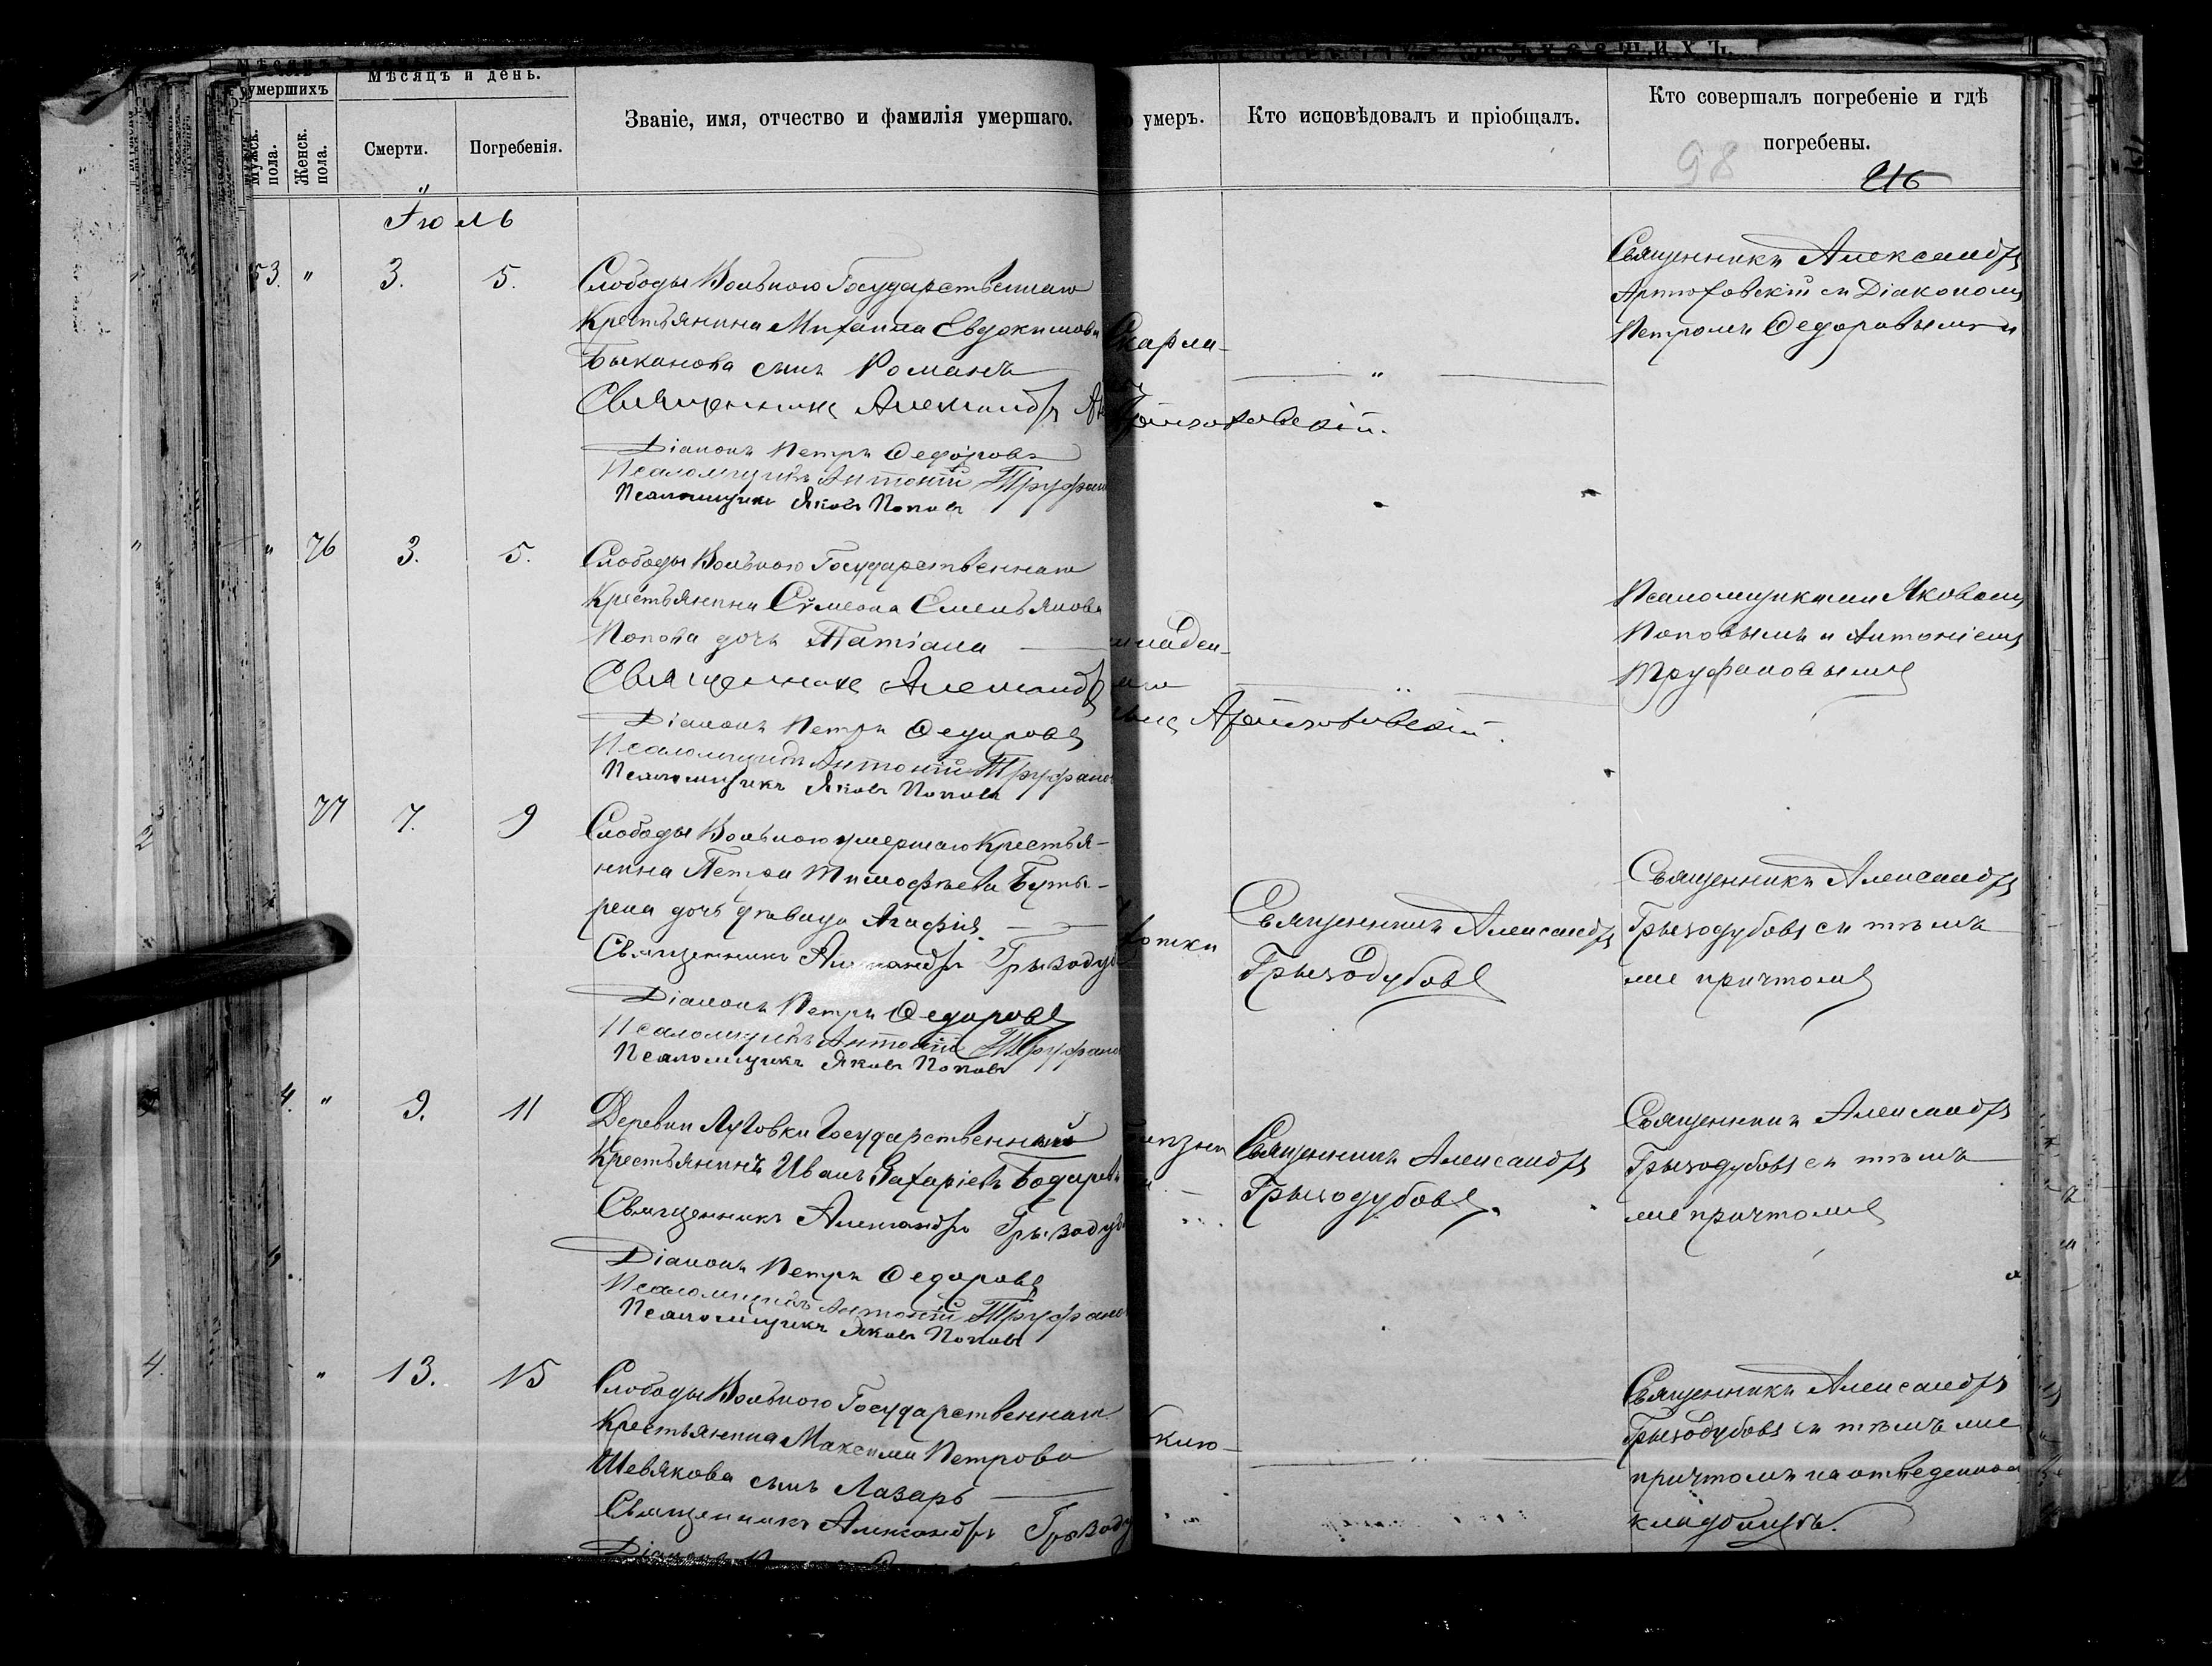 умершихъ
Мѣсяцъ и день.
Мужск. пола.
Женск. пола.
Смерти.
Погребенія.
Званіе, имя, отчество и фамилія умершаго.
умеръ.
Кто исповѣдовалъ и пріобщалъ.
Кто совершалъ погребеніе и гдѣ
погребены.
98
216
Іюль
53. " 3. 5.
Слободы Вольного Государственнаго
Крестьянина Михаила Евдокимова
Быканова сынъ Романъ
Священникъ Александръ
Діаконъ Петръ Ѳедоровъ
Псаломщикъ Антоній
Псаломщикъ Яковъ Поповъ
Скарла-
"
Священникъ Александръ
Діакономъ
Петромъ Ѳедоровымъ и
" 76 3. 5.
Слободы Вольного Государственнаго
Крестьянина Сѵмеона Емельянова
Попова дочь Татіана
Священникъ Александръ
Діаконъ Петръ Ѳедоровъ
Псаломщикъ Антоній
Псаломщикъ Яковъ Поповъ
младен-
"
Псаломщиками Яковомъ
Поповымъ и Антоніемъ
Труфановымъ
77 7. 9
Слободы Вольного умершаго Крестья-
нина Петра Тимофѣева
дочь дѣвица Агафія
Священникъ Александръ
Діаконъ Петръ Ѳедоровъ
Псаломщикъ Антоній
Псаломщикъ Яковъ Поповъ
Священникъ Александръ
Грызодубовъ
Священникъ Александръ
Грызодубовъ съ тѣмъ
же причтомъ
4. " 9. 11
Деревни Луговки Государственный
Крестьянинъ Иванъ Захаріевъ
Священникъ Александръ
Діаконъ Петръ Ѳедоровъ
Псаломщикъ Антоній
Псаломщикъ Яковъ Поповъ
Священникъ Александръ
Грызодубовъ.
Священникъ Александръ
Грызодубовъ съ тѣмъ
же причтомъ
" 13. 15
Слободы Вольного Государственнаго
Крестьянина Максима Петрова
Шевякова сынъ Лазарь
Священникъ Александръ
"
Священникъ Александръ
Грызодубовъ съ тѣмъ же
причтомъ на отведенномъ
кладбищѣ.